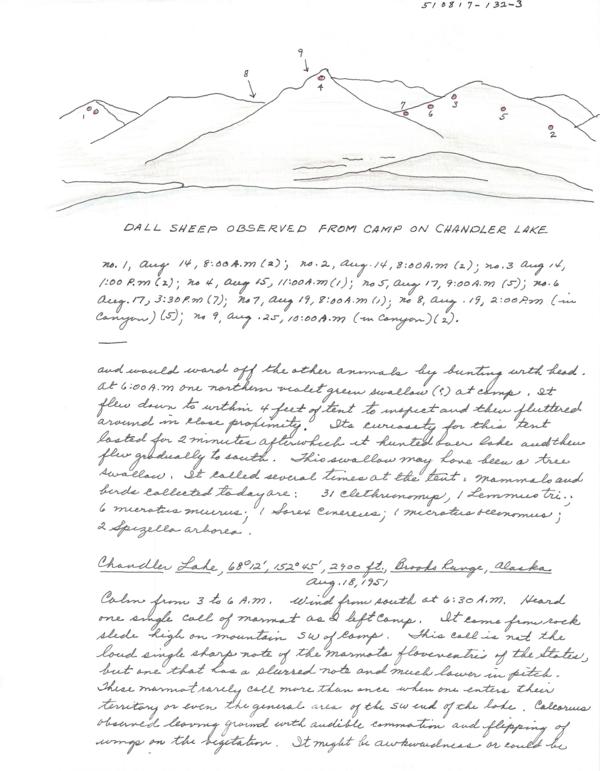 510817-132-3
9
8
4
1
7
6
3
5
2
DALL SHEEP OBSERVED FROM CAMP ON CHANDLER LAKE
no. 1, Aug 14, 8:00A.M (2); no. 2, Aug. 14, 8:00A.M (2); no. 3 Aug 14,
1:00 P.M (2); no 4, Aug 15, 11:00A.M (1); no 5, Aug 17, 9:00A.M (5); no. 6
Aug. 17, 3:30P.M (7); No 7, Aug 19, 8:00A.M (1); no 8, Aug. 19, 2:00P.M (in
Canyon) (5); no 9, Aug. 25, 10:00A.M (in Canyon) (2).
and would ward off the other animals by bunting with head.
At 6:00A.M one northern violet green swallow (?) at camp. It
flew down to within 4 feet of tent to inspect and then fluttered
around in close proximity. Its curiosity for this tent
lasted for 2 minutes after which it hunted over lake and then
flew gradually to south. This swallow may have been a tree
swallow. It called several times at the tent. Mammals and
birds collected today are: 31 Clethrionomys, 1 Lemmus tri.;
6 microtus miurus; 1 Sorex Cinereus; 1 microtus oeconomus;
2 Spizella arborea.
Chandler Lake, 68°12', 152°45', 2900 ft., Brooks Range, Alaska
Aug. 18, 1951
Calm from 3 to 6 A.M. Wind from south at 6:30 A.M. Heard
one single call of marmot as I left camp. It came from rock
slide high on mountain SW of camp. This call is not the
loud single sharp note of the Marmota flaviventris of the States,
but one that has a slurred note and much lower in pitch.
These marmot rarely call more than once when one enters their
territory or even the general area of the SW end of the lake. Calcarius
observed leaving ground with audible commotion and flipping of
wings on the vegetation. It might be awkwardness or could be